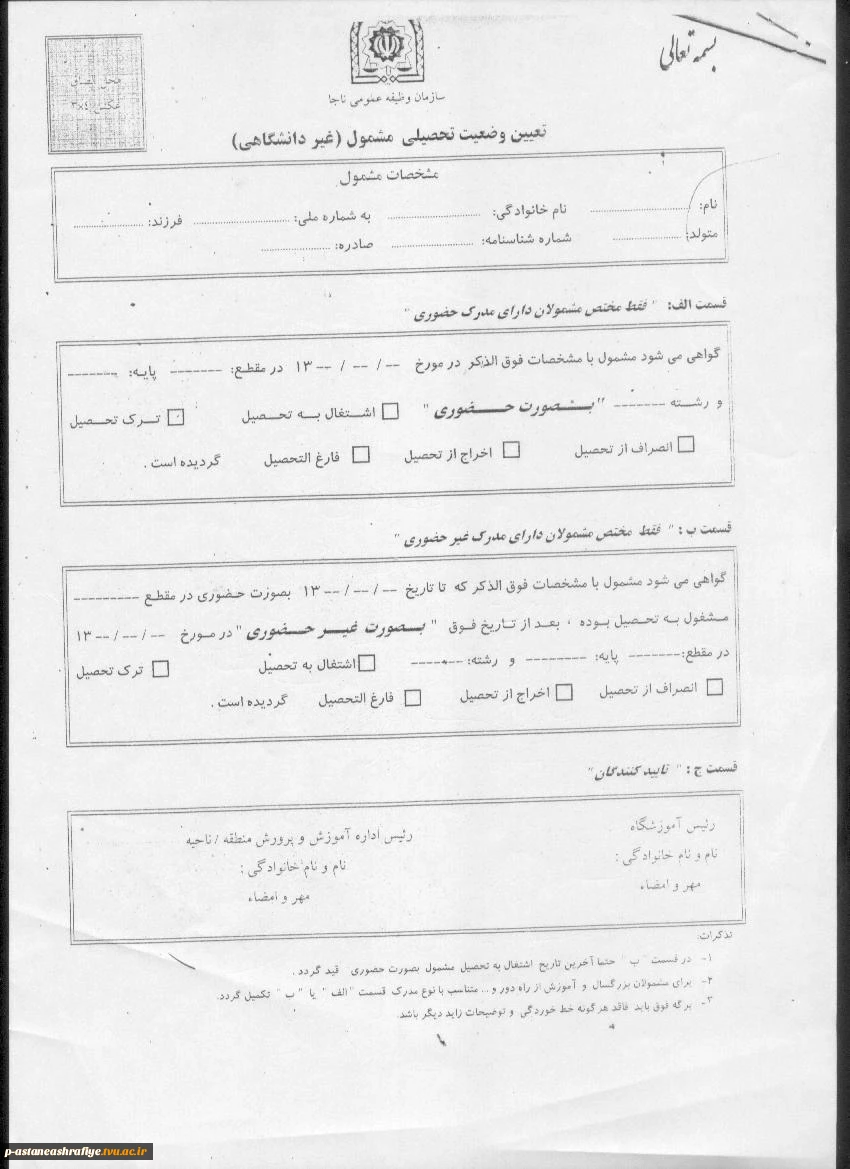 بسمه تعالی
محل الصاق
عکس ۴×۳
سازمان وظیفه عمومی ناجا
تعیین وضعیت تحصیلی مشمول (غیر دانشگاهی)
مشخصات مشمول
نام: نام خانوادگی: به شماره ملی: فرزند:
متولد: شماره شناسنامه: صادره:
قسمت الف: " فقط مختص مشمولان دارای مدرک حضوری "
گواهی می شود مشمول با مشخصات فوق الذکر در مورخ -- / -- / -- ۱۳ در مقطع: ------- پایه: -------
و رشته ------- " بصورت حضوری " □ اشتغال به تحصیل □ ترک تحصیل
□ انصراف از تحصیل □ اخراج از تحصیل □ فارغ التحصیل گردیده است .
قسمت ب : " فقط مختص مشمولان دارای مدرک غیر حضوری "
گواهی می شود مشمول با مشخصات فوق الذکر که تا تاریخ -- / -- / -- ۱۳ بصوزت حضوری در مقطع ---------
مشغول به تحصیل بوده ، بعد از تاریخ فوق " بصورت غیر حضوری " در مورخ -- / -- / -- ۱۳
در مقطع:------- پایه: -------- و رشته: ------- □ اشتغال به تحصیل □ ترک تحصیل
□ انصراف از تحصیل □ اخراج از تحصیل □ فارغ التحصیل گردیده است .
قسمت ج : " تایید کنندگان "
رئیس آموزشگاه رئیس اداره آموزش و پرورش منطقه / ناحیه
نام و نام خانوادگی : نام و نام خانوادگی :
مهر و امضاء مهر و امضاء
تذکرات:
۱- در قسمت " ب " حتما آخرین تاریخ اشتغال به تحصیل مشمول بصورت حضوری قید گردد .
۲- برای مشمولان بزرگسال و آموزش از راه دور و ... متناسب با نوع مدرک قسمت " الف " یا " ب " تکمیل گردد.
۳- برگه فوق باید فاقد هر گونه خط خوردگی و توضیحات زاید دیگر باشد.
p-astaneashrafiye.tvu.ac.ir